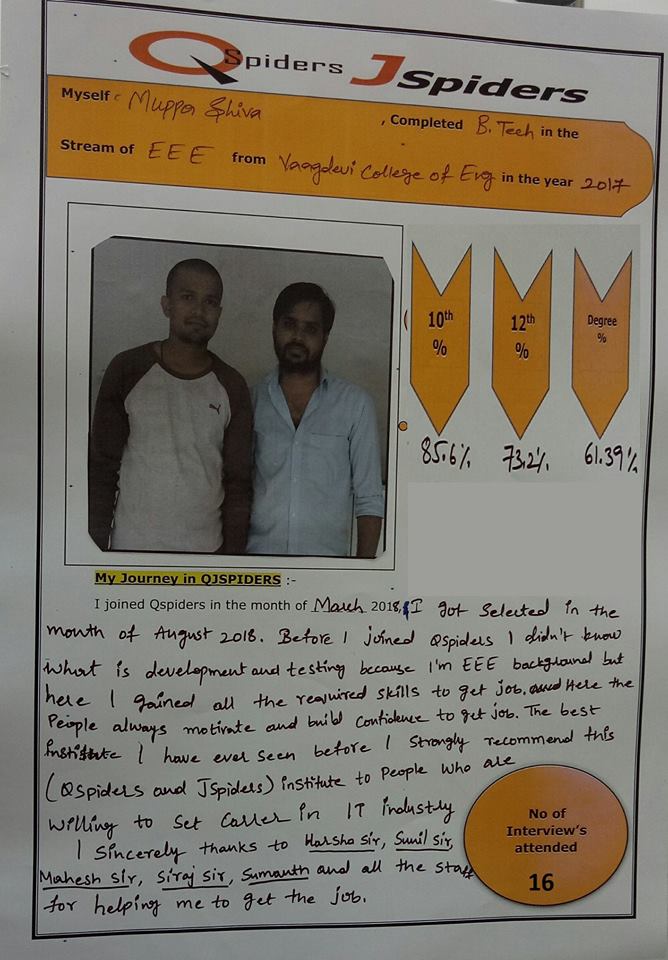 QSpiders JSpiders
Myself : Muppa Shiva , Completed B. Tech in the
Stream of EEE from Vaagdevi College of Eng in the year 2017
10th % 12th % Degree %
85.6% 73.2% 61.39%
My Journey in QJSPIDERS :-
I joined Qspiders in the month of March 2018, I got selected in the
month of August 2018. Before I joined Qspiders I didn't know
what is development and testing because I'm EEE background but
here I gained all the required skills to get job. and Here the
People always motivate and build confidence to get job. The best
institute I have ever seen before I strongly recommend this
(Qspiders and JSpiders) institute to people who are
willing to set Carrer in IT industry
I Sincerely thanks to Harsha Sir, Sunil Sir,
Mahesh Sir, Siraj Sir, Sumanth and all the staff
for helping me to get the job.
No of
Interview's
attended
16